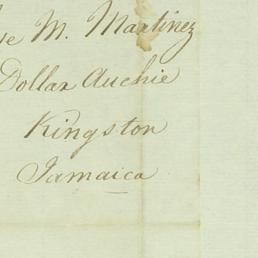 se M. Martinez
Dollar Auchie
Kingston
Jamaica